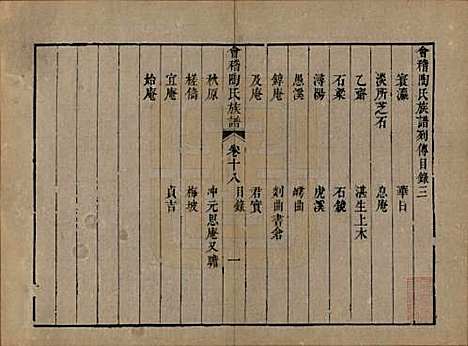 會稽陶氏族譜列傳目錄三
寰瀛　華日
淡所芝石　息庵
乙齋　湛生上木
石梁　石鏡
潯陽　虎溪
愚溪　嶧曲
錞庵　剡曲書倉
及庵　君實
會稽陶氏族譜　卷十八　目錄　一
秋原　冲元思庵又騰
槎儔　梅坡
宜庵　貞吉
始庵